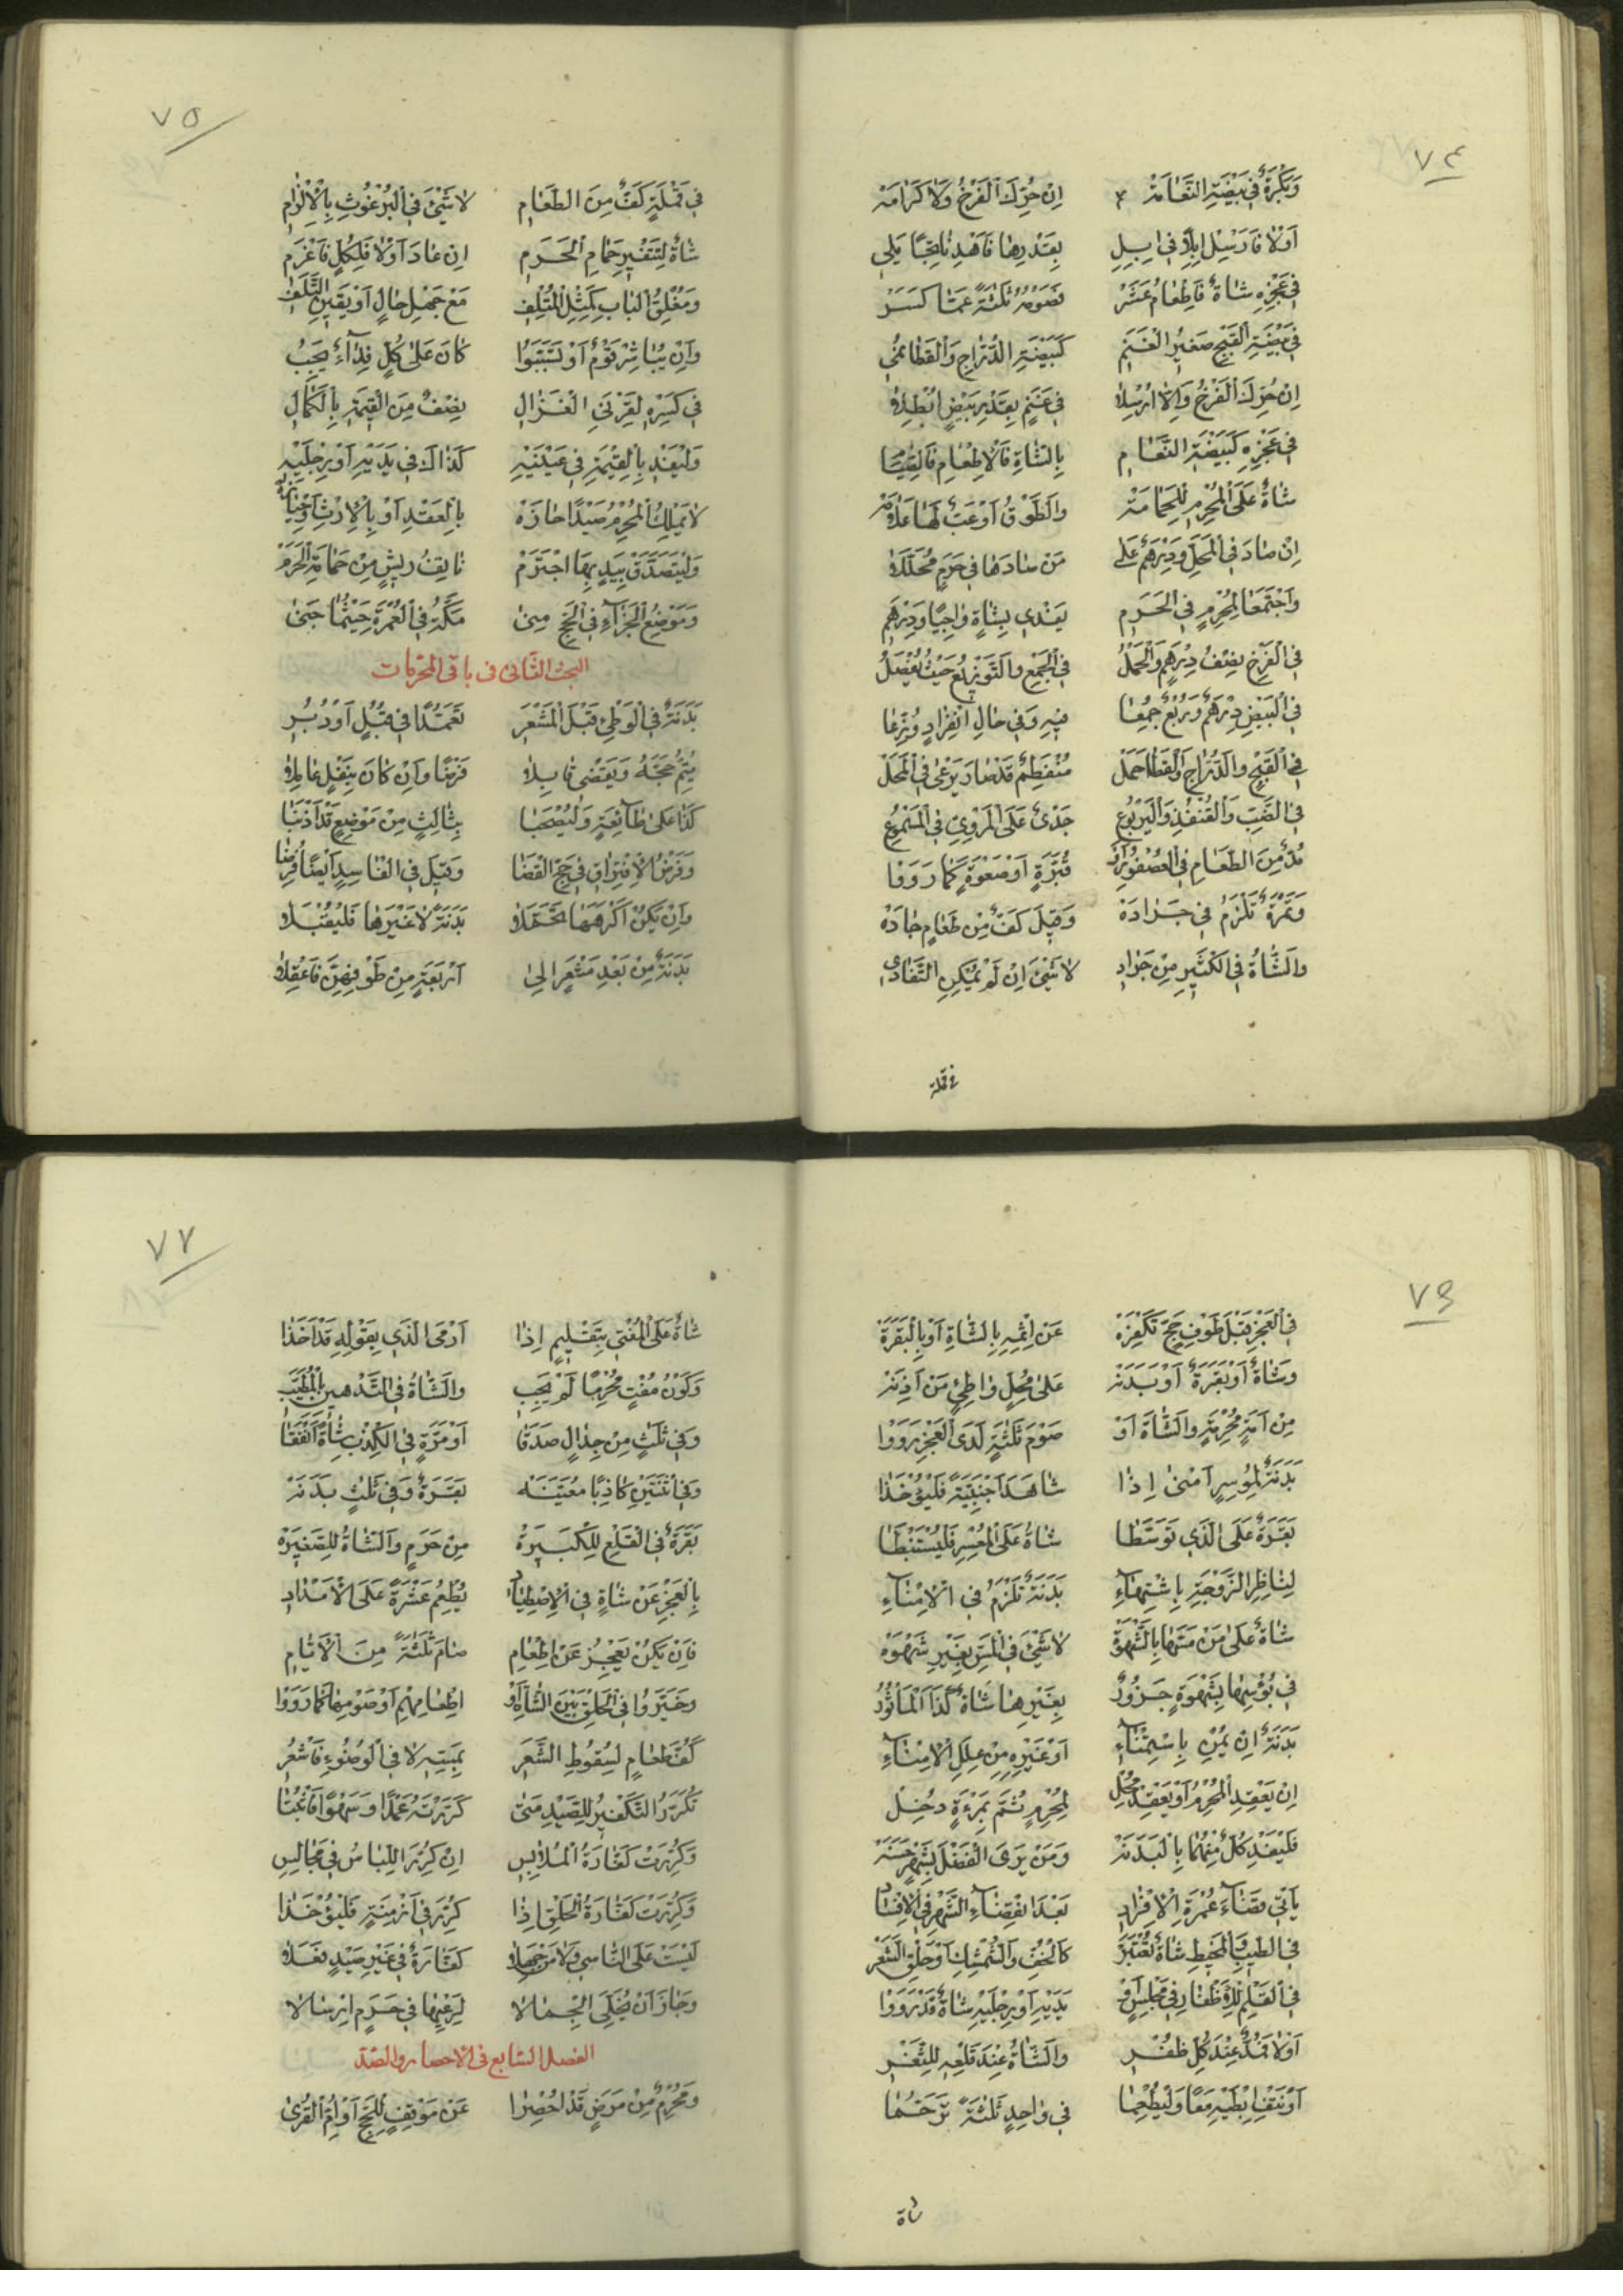 ٧٤
وَبَكْرَةٌ فِي بَيْضَةِ النَّعَامَةْ اِنْ حُرِّكَ الْفَرْخُ وَلَا كَرَامَةْ
اَوْلَا فَارْسِلْ اِبِلًا فِي اِبِلِ بِعَدِّهَا فَاهْدِ نَاتِجًا يَلِي
فِي عَجْزِهِ شَاةٌ فَاِطْعَامُ عَشَرْ فَصَوْمُهُ ثَلٰثَةً عَمَّا كَسَرْ
فِي بَيْضَةِ الْقَبْجِ صَغِيرُ الْغَنَمِ كَبَيْضَةِ الدُّرَّاجِ وَالْقَطَا
اِنْ حُرِّكَ الْفَرْخُ وَاِلَّا اُرْسِلَا فِي غَنَمٍ بِعَدِّ بَيْضٍ اُبْطِلَا
فِي عَجْزِهِ كَبَيْضَةِ النَّعَامِ بِالشَّاةِ فَالْاِطْعَامِ فَالصِّيَامِ
شَاةٌ عَلَى الْمُحْرِمِ لِلْحَمَامَةْ وَالطَّوْقُ اَوْعَبٌّ لَهَا عَلَامَةْ
اِنْ صَادَ فِي الْمَحَلِّ وَدِرْهَمٌ عَلَى مَنْ صَادَهَا فِي حَرَمٍ مُحَلَّلَا
وَاجْتَمَعَا لِمُحْرِمٍ فِي الْحَرَمِ يَفْدِي بِشَاةٍ وَاجِبًا وَدِرْهَمِ
فِي الْفَرْخِ نِصْفُ دِرْهَمٍ وَالْحَمَلُ فِي الْجَمْعِ وَالتَّوْزِيعُ حَيْثُ يُفْصَلُ
فِي الْبَيْضِ دِرْهَمٌ وَرُبْعٌ جُمِعَا فِيهِ وَفِي حَالِ انْفِرَادٍ وُزِّعَا
فِي الْقَبْجِ وَالدُّرَّاجِ وَالْقَطَا حَمَلْ مُنْفَطِمٌ قَدْ صَارَ يَرْعٰى فِي الْمَحَلْ
فِي الضَّبِّ وَالْقُنْفُذِ وَالْيَرْبُوعِ جَدْيٌ عَلَى الْمَرْوِيِّ فِي الْمَسْمُوعِ
مُدٌّ مِنَ الطَّعَامِ فِي الْعُصْفُورِ اَوْ قُبَّرَةٍ اَوْصَعْوَةٍ كَمَا رَوَوْا
وَتَمْرَةٌ تَلْزَمُ فِي جَرَادَةْ وَقِيلَ كَفٌّ مِنْ طَعَامٍ جَادَهْ
وَالشَّاةُ فِي الْكَثِيرِ مِنْ جَرَادِ لَا شَيْئَ اِنْ لَمْ يُمْكِنِ التَّفَادِي
فى قملة
٧٥
فِي قَمْلَةٍ كَفٌّ مِنَ الطَّعَامِ لَا شَيْئَ فِي الْبُرْغُوثِ بِالْاِلْزَامِ
شَاةٌ لِتَنْفِيرِ حَمَامِ الْحَرَمِ اِنْ عَادَ اَوْلَا فَلِكُلٍّ فَاغْرَمِ
وَمُغْلِقُ الْبَابِ كَمِثْلِ الْمُتْلِفِ مَعْ جَهْلِ حَالٍ اَوْ يَقِينِ التَّلَفِ
وَاِنْ يُبَاشِرْ قَوْمٌ اَوْ تَسَبَّبُوا كَانَ عَلٰى كُلٍّ فِدَآءٌ يَجِبُ
فِي كَسْرِهِ لِقَرْنَيِ الْغَزَالِ نِصْفٌ مِنَ الْقِيمَةِ بِالْكَمَالِ
وَلْيَفْدِ بِالْقِيمَةِ فِي عَيْنَيْهِ كَذَاكَ فِي يَدَيْهِ اَوْ رِجْلَيْهِ
لَا يَمْلِكُ الْمُحْرِمُ صَيْدًا حَازَهْ بِالْعَقْدِ اَوْ بِالْاِرْثِ اَوْ حِيَازَهْ
وَلْيَتَصَدَّقْ بِيَدٍ بِهَا اجْتَرَمْ نَاتِفُ رِيشٍ مِنْ حَمَامَةِ الْحَرَمْ
وَمَوْضِعُ الْجَزَآءِ فِي الْحَجِّ مِنٰى مَكَّةُ فِي الْعُمْرَةِ حَيْثُمَا جَنٰى
البحث الثانى فى باقى المحرمات
بَدَنَةٌ فِي الْوَطْئِ قَبْلَ الْمَشْعَرِ تَعَمُّدًا فِي قُبُلٍ اَوْ دُبُرِ
يُتِمُّ حَجَّهُ وَيَقْضِي قَابِلَا فَرْضًا وَاِنْ كَانَ بِنَفْلٍ عَامِلَا
كَذَا عَلٰى طَآئِعَةٍ وَلْيُصْحَبَا بِثَالِثٍ مِنْ مَوْضِعٍ قَدْ اَذْنَبَا
وَفَرْضُ الْاِفْتِرَاقِ فِي حَجِّ الْقَضَا وَقِيلَ فِي الْفَاسِدِ اَيْضًا فُرِضَا
وَاِنْ يَكُنْ اَكْرَهَهَا تَحَمَّلَا بَدَنَةً لَا غَيْرَهَا فَلْيُقْبَلَا
بَدَنَةٌ مِنْ بَعْدِ مَشْعَرٍ اِلَى اَرْبَعَةٍ مِنْ طَوْفِهِنَّ فَاعْقِلَا
٧٦
فِي الْعَجْزِ قَبْلَ طَوْفِ حَجٍّ تَكْفِرَهْ عَنْ اِثْمِهِ بِالشَّاةِ اَوْ بِالْبَقَرَةْ
وَشَاةٌ اَوْ بَقَرَةٌ اَوْ بَدَنَةْ عَلٰى مُحِلٍّ وَاطِئٍ مَنْ اَذِنَهْ
مِنْ اَمَةٍ مُحْرِمَةٍ وَالشَّاةَ اَوْ صَوْمَ ثَلٰثَةٍ لَدَى الْعَجْزِ رَوَوْا
بَدَنَةٌ لِمُوسِرٍ اَمْنٰى اِذَا شَاهَدَ اَجْنَبِيَّةً فَلْيُؤْخَذَا
بَقَرَةٌ عَلَى الَّذِي تَوَسَّطَا شَاةٌ عَلَى الْمُعْسِرِ فَلْيُسْتَنْبَطَا
لِنَاظِرِ الزَّوْجَةِ بِاشْتِهَآءِ بَدَنَةٌ تَلْزَمُ فِي الْاِمْنَآءِ
شَاةٌ عَلٰى مَنْ مَسَّهَا بِالشَّهْوَةْ لَا شَيْئَ فِي الْمَسِّ بِغَيْرِ شَهْوَهْ
فِي بَوْسِهَا بِشَهْوَةٍ جَزُورٌ بِغَيْرِهَا شَاةٌ كَذَا الْمَأْثُورُ
بَدَنَةٌ اِنْ يُمْنِ بِاسْتِمْنَآءِ اَوْ غَيْرِهِ مِنْ عِلَلِ الْاِمْنَآءِ
اِنْ يَعْقِدِ الْمُحْرِمُ اَوْ يَعْقِدْ مُحِلْ لِمُحْرِمٍ ثُمَّ بِمَرْءَةٍ دَخَلْ
فَلْيَفْدِ كُلٌّ مِنْهُمَا بِالْبَدَنَةْ وَمَنْ يَرَى الْفَضْلَ بِشَهْرٍ حَسَنَهْ
يَأْتِي قَضَآءَ عُمْرَةِ الْاِفْرَادِ بَعْدَ انْقِضَآءِ الشَّهْرِ فِي الْاِفْسَادِ
فِي الطِّيبِ وَالْمَخِيطِ شَاةٌ تُعْتَبَرْ كَالْخُفِّ وَالشُّمِشْكِ اَوْ حَلْقِ الشَّعَرْ
فِي الْقَلْمِ لِلْاَظْفَارِ فِي مَجْلِسٍ اَوْ يَدَيْهِ اَوْ رِجْلَيْهِ شَاةٌ قَدْ رَوَوْا
اَوْلَا فَمُدٌّ عِنْدَ كُلِّ ظُفْرِ وَالشَّاةُ عِنْدَ قَلْعِهِ لِلثَّغْرِ
اَوْ نَتْفِ اِبْطَيْهِ مَعًا وَلْيُطْعِمَا فِي وَاحِدٍ ثَلٰثَةً تَرَحُّمَا
شاة
٧٧
شَاةٌ عَلَى الْمُفْتِي بِتَقْلِيمٍ اِذَا اَدْمَى الَّذِي بِقَوْلِهِ قَدْ اَخَذَا
وَكَوْنُ مُفْتٍ مُحْرِمًا لَمْ يَجِبِ وَالشَّاةُ فِي التَّدْهِينِ بِالْمُطَيَّبِ
وَفِي ثَلٰثٍ مِنْ جِدَالٍ صَدَقَا اَوْ مَرَّةٍ فِي الْكِذْبِ شَاةً اَنْفَقَا
وَفِي اثْنَتَيْنِ كَاذِبًا مُعَيَّنَهْ بَقَرَةٌ وَفِي ثَلٰثٍ بَدَنَةْ
بَقَرَةٌ فِي الْقَلْعِ لِلْكَبِيرَةْ مِنْ حَرَمٍ وَالشَّاةُ لِلصَّغِيرَهْ
بِالْعَجْزِ عَنْ شَاةٍ فِي الْاِصْطِيَادِ يُطْعِمُ عَشْرَةً عَلَى الْاَمْدَادِ
فَاِنْ يَكُنْ يَعْجُزُ عَنْ اِطْعَامِ صَامَ ثَلٰثَةً مِنَ الْاَيَّامِ
وَخَيَّرُوا فِي الْحَلْقِ بَيْنَ الشَّاةِ اَوْ اِطْعَامِهِمْ اَوْ صَوْمِهَا كَمَا رَوَوْا
كَفُّ طَعَامٍ لِسُقُوطِ الشَّعَرِ بِمَسِّهِ لَا فِي الْوُضُوءِ فَاشْعُرِ
تَكَرَّرَ التَّكْفِيرُ لِلصَّيْدِ مَتٰى كَرَّرْتَهُ عَمْدًا وَسَهْوًا فَاثْبُتَا
وَكُرِّرَتْ كَفَّارَةُ الْمُلَابِسِ اِنْ كُرِّرَ اللِّبَاسُ فِي مَجَالِسِ
وَكُرِّرَتْ كَفَّارَةُ الْحَلْقِ اِذَا كُرِّرَ فِي اَزْمِنَةٍ فَلْيُؤْخَذَا
لَيْسَتْ عَلَى النَّاسِي وَلَا مَنْ جَهِلَا كَفَّارَةٌ فِي غَيْرِ صَيْدٍ فَعَلَا
وَجَازَ اَنْ يُخَلِّيَ الْجِمَالَا لِرَعْيِهَا فِي حَرَمٍ اِرْسَالَا
الفصل السابع فى الاحصار والصد
وَمُحْرِمٌ مِنْ مَرَضٍ قَدْ اُحْصِرَا عَنْ مَوْقِفٍ لِلْحَجِّ اَوْ اُمِّ الْقُرٰى